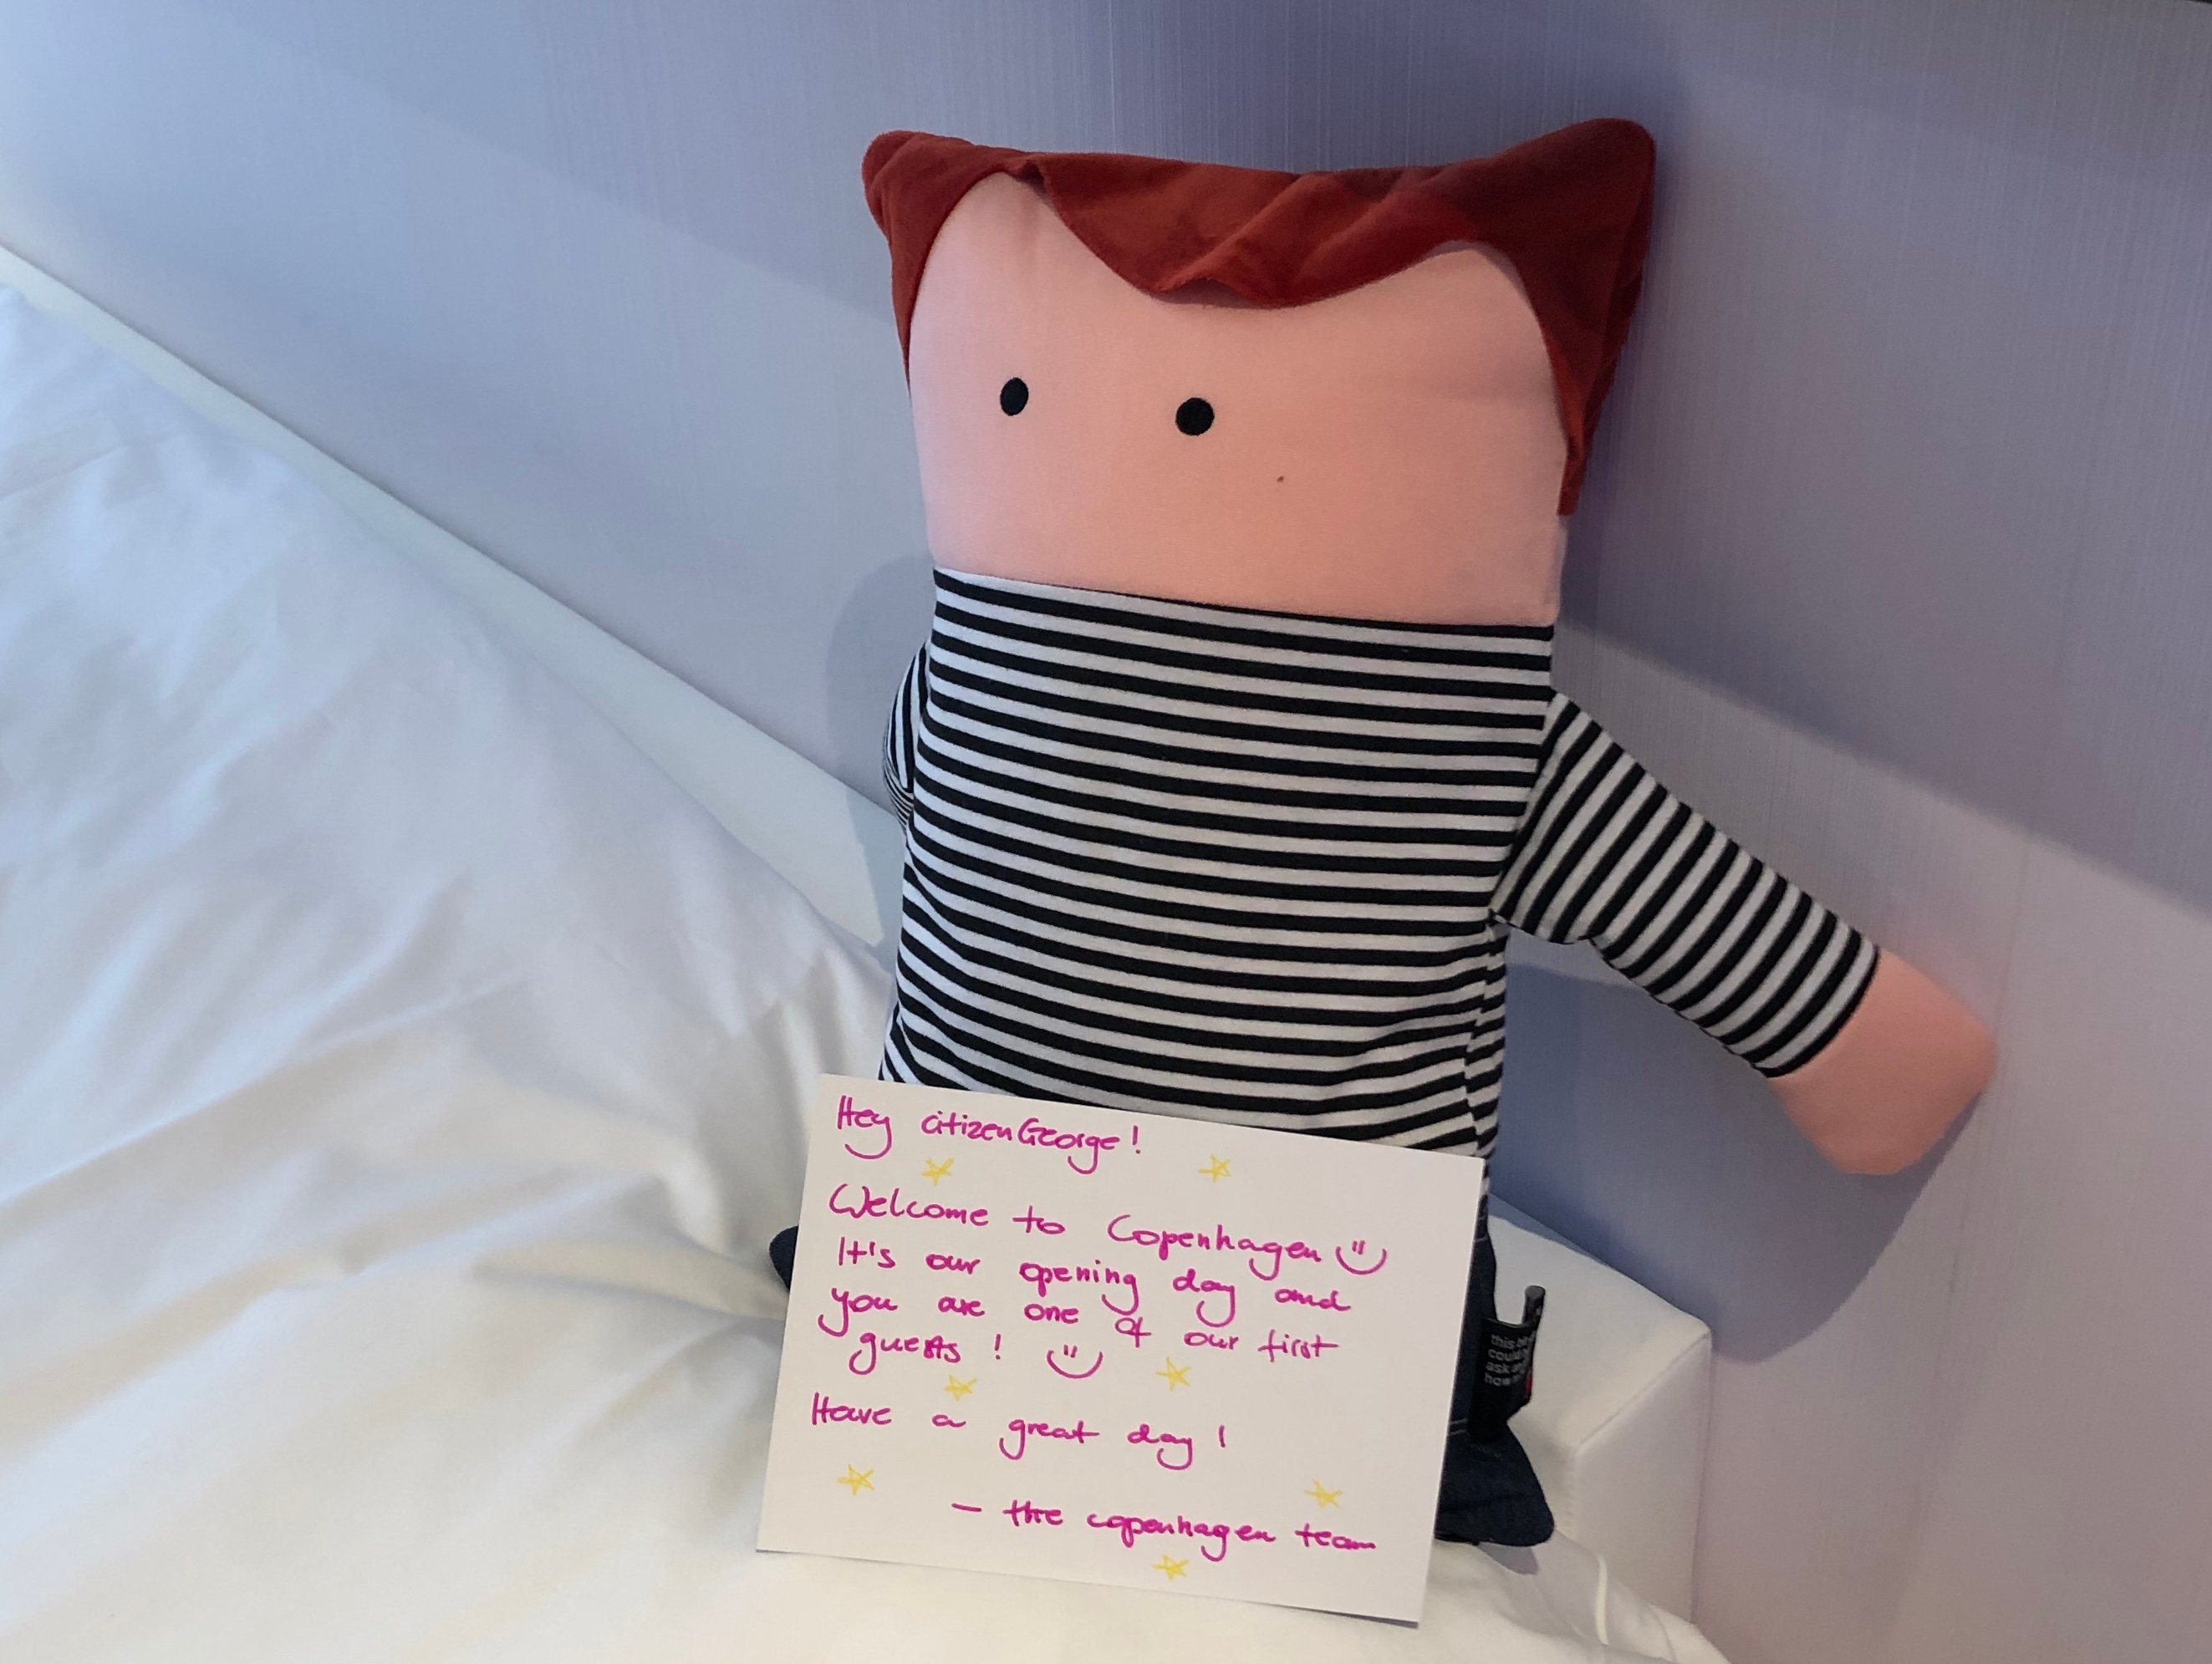 Hey citizenGeorge!
Welcome to Copenhagen
It's our opening day and
you are one of our first
guests!
Have a great day!
— the copenhagen team
this
could
ask
how